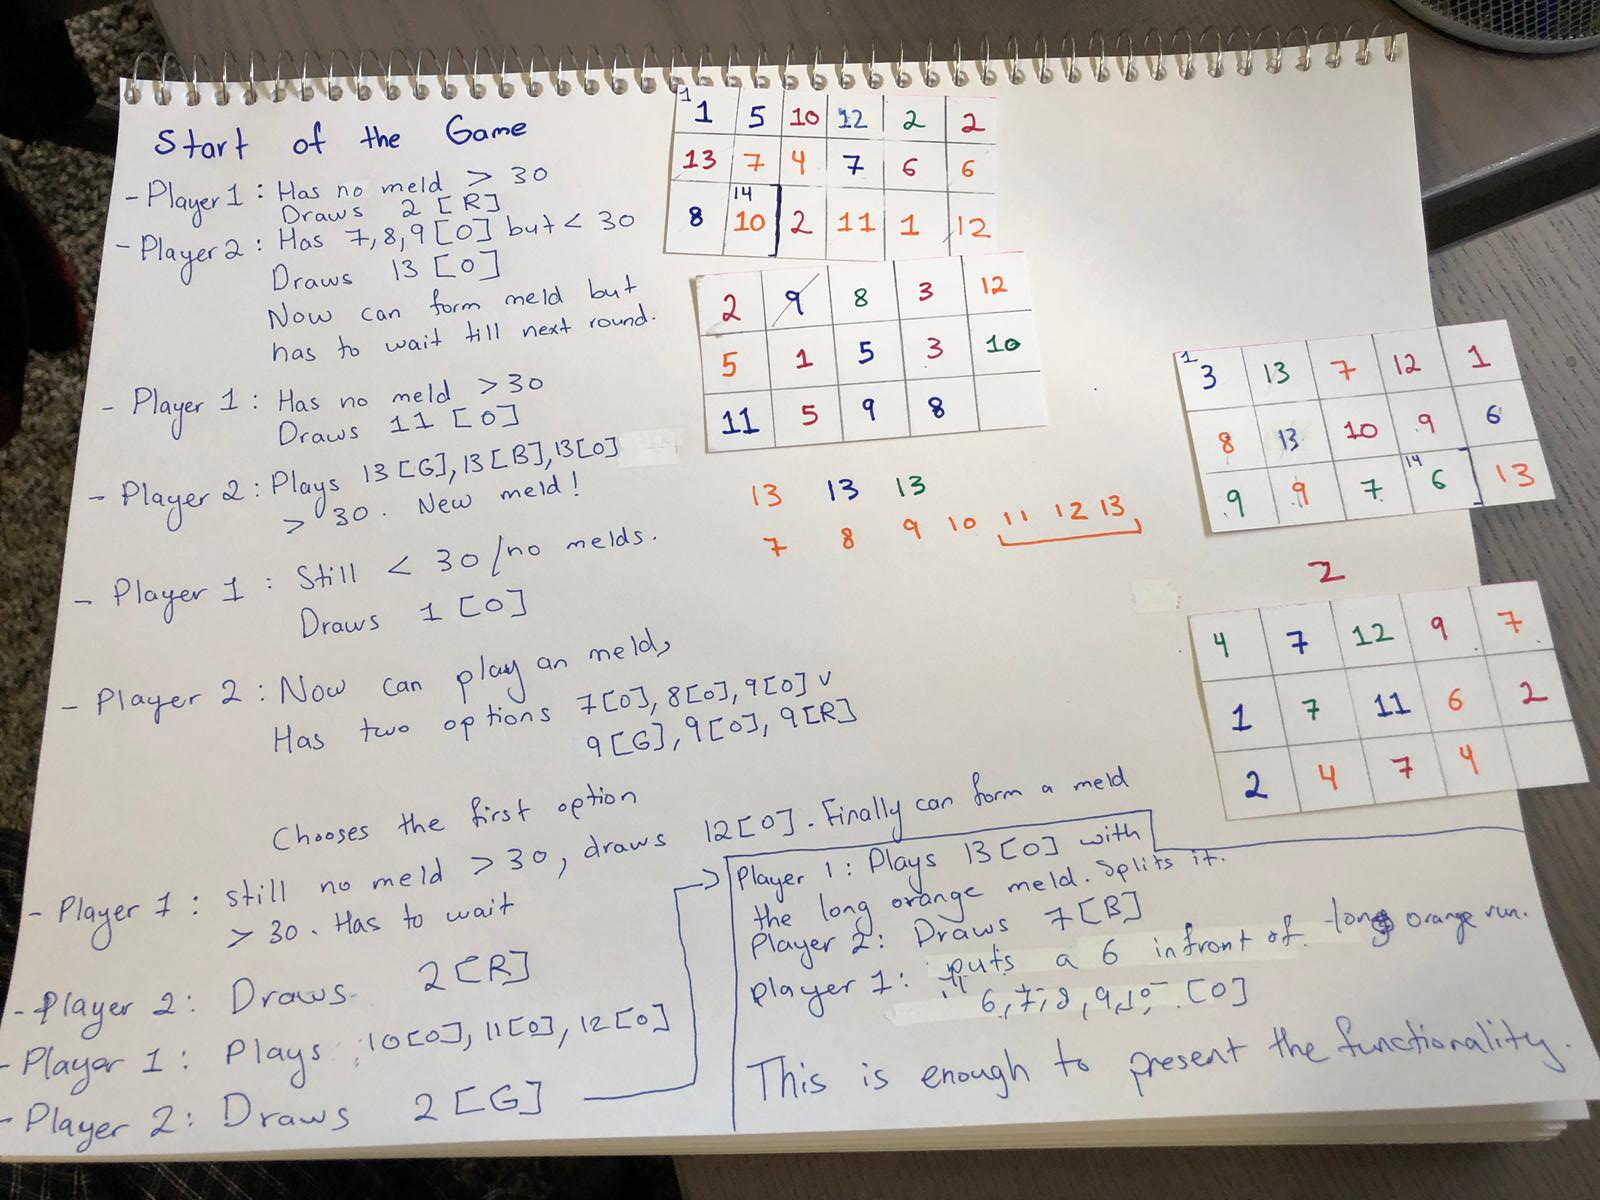 Start of the Game
- Player 1 : Has no meld > 30
Draws 2 [R]
- Player 2 : Has 7, 8, 9 [O] but < 30
Draws 13 [O]
Now can form meld but
has to wait till next round.
- Player 1 : Has no meld > 30
Draws 11 [O]
- Player 2 : Plays 13 [G], 13 [B], 13 [O]
> 30. New meld!
- Player 1 : Still < 30 / no melds.
Draws 1 [O]
- Player 2 : Now can play an meld,
Has two options 7[O], 8[O], 9[O] v
9[G], 9[O], 9[R]
Chooses the first option
- Player 1 : still no meld > 30, draws 12[O]. Finally can form a meld
> 30. Has to wait
- Player 2: Draws 2 [R]
- Player 1 : Plays 10[O], 11[O], 12[O]
- Player 2: Draws 2 [G]
Player 1 : Plays 13 [O] with
the long orange meld. Splits it.
Player 2: Draws 7 [B]
Player 1: puts a 6 infront of long orange run.
6, 7, 8, 9, 10 [O]
This is enough to present the functionality.
1
1 5 10 12 2 2
13 7 4 7 6 6
14
8 10 2 11 1 12
2 9 8 3 12
5 1 5 3 10
11 5 9 8
13 13 13
7 8 9 10 11 12 13
1
3 13 7 12 1
8 13 10 9 6
14
9 9 7 6 13
2
4 7 12 9 7
1 7 11 6 2
2 4 7 4